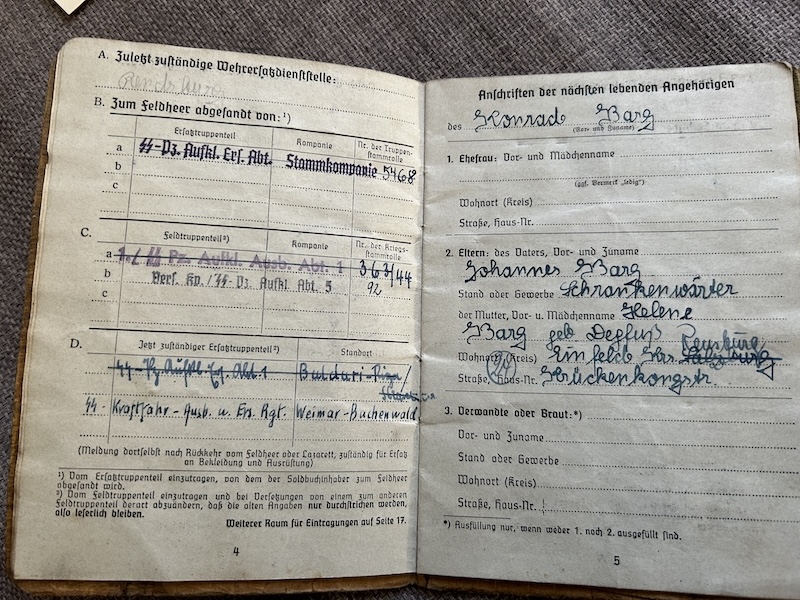 A. Zuletzt zuständige Wehrersatzdienststelle:
B. Zum Feldheer abgesandt von:¹)
Ersatztruppenteil
Kompanie
Nr. der Truppen-
stammrolle
a
ᛋᛋ-Pz. Aufkl. Ers. Abt.
Stammkompanie
5468
b
c
C.
Feldtruppenteil²)
Kompanie
Nr. der Kriegs-
stammrolle
a
1./ ᛋᛋ Pz. Aufkl. Ausb. Abt. 1
363/44
b
Vers. Kp./ᛋᛋ-Pz. Aufkl. Abt. 5
92
c
D.
Jetzt zuständiger Ersatztruppenteil²)
Standort
ᛋᛋ-Pz. Aufkl. Ers. Abt. 1
Buldari-Riga/
ᛋᛋ-Kraftfahr-Ausb. u. Ers. Rgt.
Weimar-Buchenwald
(Meldung dortselbst nach Rückkehr vom Feldheer oder Lazarett, zuständig für Ersatz
an Bekleidung und Ausrüstung)
¹) Vom Ersatztruppenteil einzutragen, von dem der Soldbuchinhaber zum Feldheer
abgesandt wird.
²) Vom Feldtruppenteil einzutragen und bei Versetzungen von einem zum anderen
Feldtruppenteil derart abzuändern, daß die alten Angaben nur durchstrichen werden,
also leserlich bleiben.
Weiterer Raum für Eintragungen auf Seite 17.
4
Anschriften der nächsten lebenden Angehörigen
des Konrad Barg
(Vor- und Zuname)
1. Ehefrau: Vor- und Mädchenname
(ggf. Vermerk „ledig")
Wohnort (Kreis)
Straße, Haus-Nr.
2. Eltern: des Vaters, Vor- und Zuname
Johannes Barg
Stand oder Gewerbe Schrankenwärter
der Mutter, Vor- u. Mädchenname Helene
Barg geb
Wohnort (Kreis) Einfeld Krs.
Straße, Haus-Nr.
3. Verwandte oder Braut:*)
Vor- und Zuname
Stand oder Gewerbe
Wohnort (Kreis)
Straße, Haus-Nr.
*) Ausfüllung nur, wenn weder 1. noch 2. ausgefüllt sind.
5